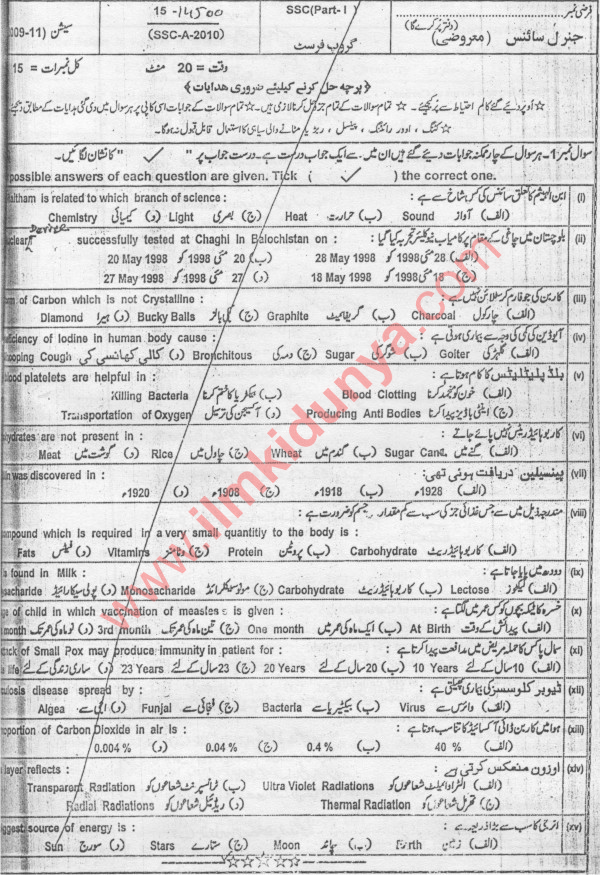 15 - 14500 SSC(Part- I ) فرضی نمبر
009-11) سیشن (SSC-A-2010) گروپ فرسٹ جنرل سائنس (معروضی)
کل نمبرات = 15 وقت = 20 منٹ
﴿ پرچہ حل کرنے کیلئے ضروری ہدایات ﴾
سوال نمبر 1- ہر سوال کے چار ممکنہ جوابات دیئے گئے ہیں ان میں سے ایک جواب درست ہے۔ درست جواب پر " ✓ " کا نشان لگائیں۔
possible answers of each question are given. Tick ( ✓ ) the correct one.
(i) ابن الہیثم کا تعلق سائنس کی کس شاخ سے ہے : altham is related to which branch of science :
(الف) آواز Sound (ب) حرارت Heat (ج) بصری Light (د) کیمیائی Chemistry
(ii) بلوچستان میں چاغی کے مقام پر کامیاب نیوکلیئر تجربہ کیا گیا : uclear Device successfully tested at Chaghi in Balochistan on :
(الف) 28 مئی 1998 کو 28 May 1998 (ب) 20 مئی 1998 کو 20 May 1998
(ج) 18 مئی 1998 کو 18 May 1998 (د) 27 مئی 1998 کو 27 May 1998
(iii) کاربن کی جو فارم کرسٹلائن نہیں ہے : m of Carbon which is not Crystalline :
(الف) چارکول Charcoal (ب) گریفائیٹ Graphite (ج) بکی بالز Bucky Balls (د) ہیرا Diamond
(iv) آیوڈین کی کمی کی وجہ سے بیماری ہوتی ہے : eficiency of Iodine in human body cause :
(الف) گلہڑ کی Goiter (ب) شوگر کی Sugar (ج) دمہ کی Bronchitous (د) کالی کھانسی کی ooping Cough
(v) بلڈ پلیٹلیٹس کا کام ہوتا ہے : lood platelets are helpful in :
(الف) خون کو منجمد کرنا Blood Clotting (ب) بیکٹریا کا ختم کرنا Killing Bacteria
(ج) اینٹی باڈیز پیدا کرنا Producing Anti Bodies (د) آکسیجن کی ترسیل Transportation of Oxygen
(vi) کاربوہائیڈریٹس نہیں پائے جاتے : ohydrates are not present in :
(الف) گنے میں Sugar Cane (ب) گندم میں Wheat (ج) چاول میں Rice (د) گوشت میں Meat
(vii) پینسیلین دریافت ہوئی تھی : in was discovered in :
(الف) 1928ء (ب) 1918ء (ج) 1908ء (د) 1920ء
(viii) مندرجہ ذیل میں سے جس غذائی جز کی سب سے کم مقدار جسم کو ضرورت ہے :
ompound which is required in a very small quantitiy to the body is :
(الف) کاربوہائیڈریٹ Carbohydrate (ب) پروٹین Protein (ج) وٹامنز Vitamins (د) فیٹس Fats
(ix) دودھ میں پایا جاتا ہے : s found in Milk :
(الف) لیکٹوز Lectose (ب) کاربوہائیڈریٹ Carbohydrate (ج) مونوسیکرائیڈ Monosacharide (د) پولی سیکرائیڈ sacharide
(x) خسرہ کا ٹیکہ بچوں کو کس عمر میں لگتا ہے : ge of child in which vaccination of measles is given :
(الف) پیدائش کے وقت At Birth (ب) ایک ماہ کی عمر میں One month (ج) تین ماہ کی عمر تک 3rd month (د) نو ماہ کی عمر تک month
(xi) سمال پاکس کا حملہ مریض میں مدافعت پیدا کرتا ہے : tack of Small Pox may produce immunity in patient for :
(الف) 10 سال کے لئے 10 Years (ب) 20 سال کے لئے 20 Years (ج) 23 سال کے لئے 23 Years (د) ساری زندگی کے لئے life
(xii) ٹیوبر کلوسسز کی بیماری پھیلتی ہے : ulosis disease spread by :
(الف) وائرس سے Virus (ب) بیکٹیریا سے Bacteria (ج) فنجائی سے Funjal (د) الجی سے Algea
(xiii) ہوا میں کاربن ڈائی آکسائیڈ کا تناسب ہوتا ہے : oportion of Carbon Dioxide in air is :
(الف) 40 % (ب) 0.4 % (ج) 0.04 % (د) 0.004 %
(xiv) اوزون منعکس کرتی ہے : layer reflects :
(الف) الٹراوائیلٹ شعاعوں کو Ultra Violet Radiations (ب) ٹرانسپرنٹ شعاعوں کو Transparent Radiation
(ج) تھرمل شعاعوں کو Thermal Radiation (د) ریڈیئل شعاعوں کو Radial Radiations
(xv) انرجی کا سب سے بڑا ذریعہ ہے : ggest source of energy is :
(الف) زمین Earth (ب) چاند Moon (ج) ستارے Stars (د) سورج Sun
www.ilmkidunya.com